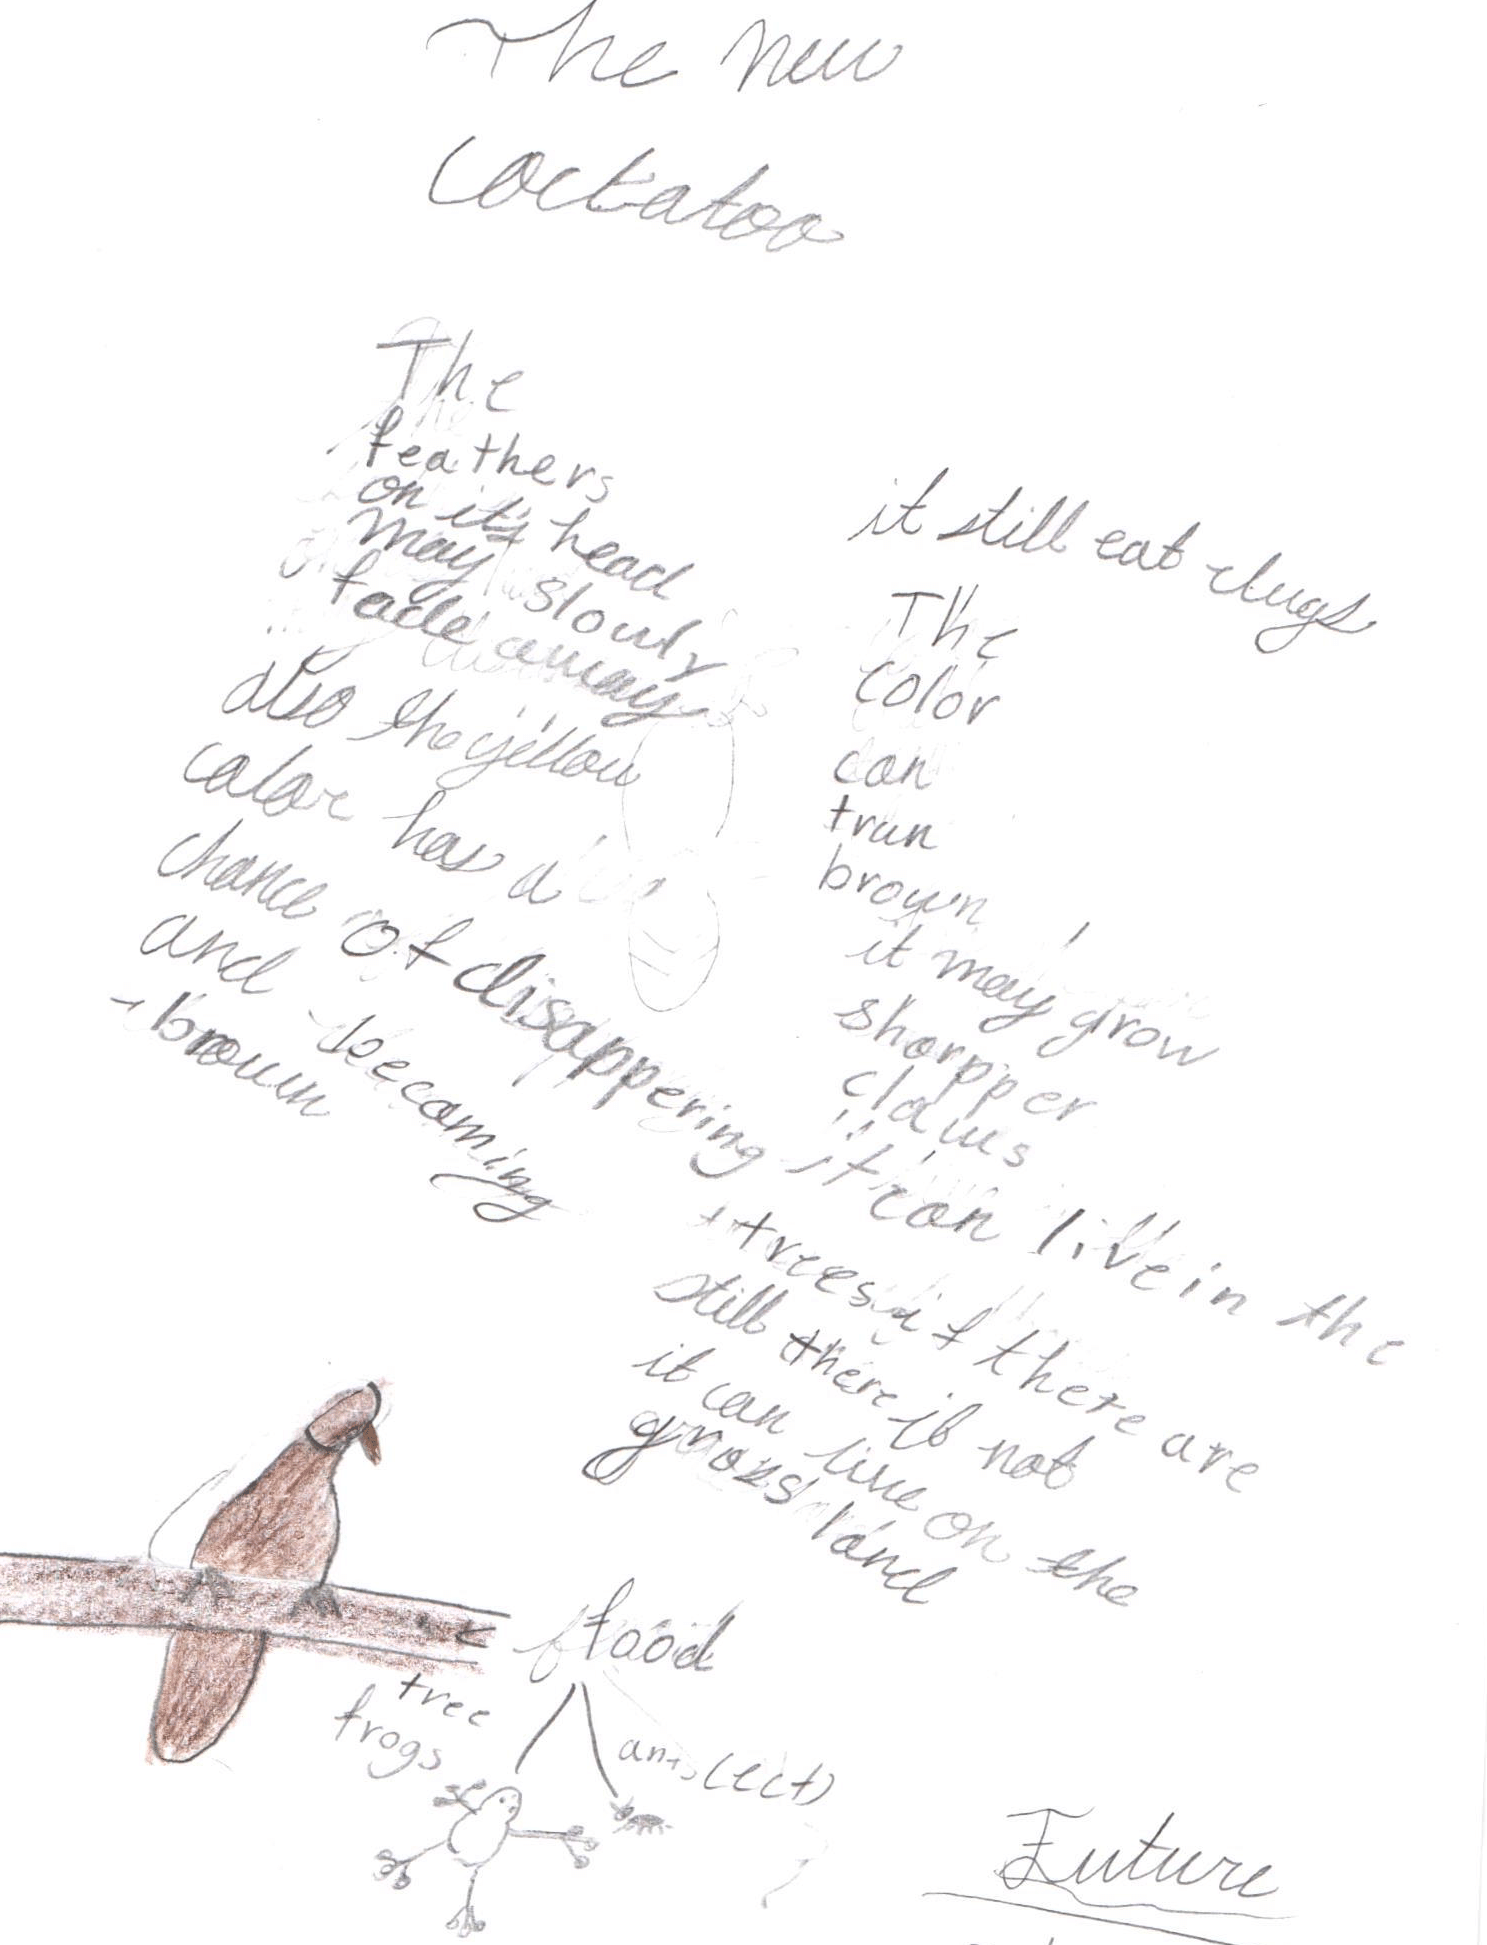 The new
cockatoo
The
feathers
on it's head
may slowly
fade away
also the yellow
color has a
chance of disappering
and becoming
brown
it still eat slugs
The
color
can
trun
brown
it may grow
sharpper
claws
it can live in the
trees if there are
still there if not
it can live on the
grass land
food
tree
frogs
ants (ect)
Future